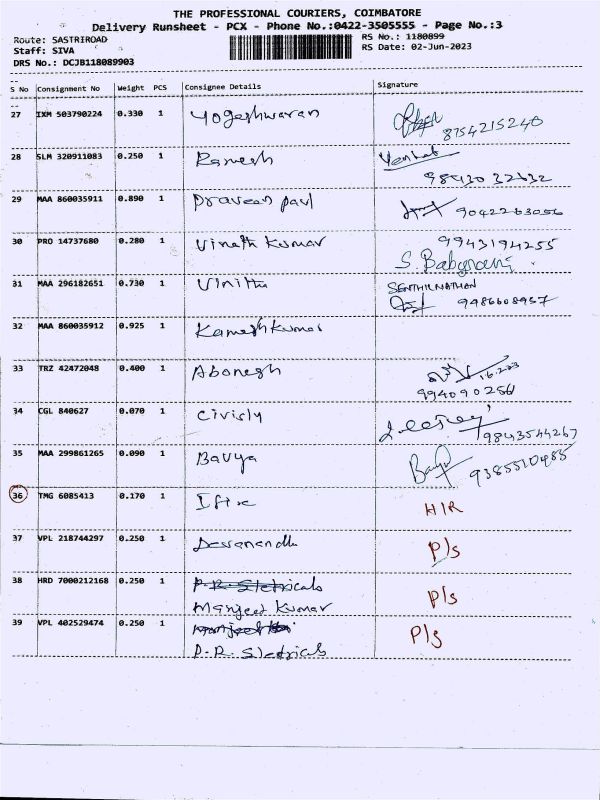 THE PROFESSIONAL COURIERS, COIMBATORE
Delivery Runsheet - PCX - Phone No.:0422-3505555 - Page No.:3
Route: SASTRIROAD
RS No.: 1180899
Staff: SIVA
RS Date: 02-Jun-2023
DRS No.: DCJB118089903
S No Consignment No Weight PCS Consignee Details Signature
27 IXM 503790224 0.330 1 Yogeshwaran
8754215240
28 SLM 320911083 0.250 1 Ramesh Venkat
98430 32632
29 MAA 860035911 0.890 1 Praveen paul 9042263056
30 PRO 14737680 0.280 1 Vinoth Kumar 9943194255
S. Babyrani
31 MAA 296182651 0.730 1 Vinitha SENTHILNATHAN
9486608957
32 MAA 860035912 0.925 1 Kamesh Kumar
33 TRZ 42472048 0.400 1 Abonesh
994090256
34 CGL 840627 0.070 1 Civisly
9843544267
35 MAA 299861265 0.090 1 Bavya
9385510485
36 TMG 6085413 0.170 1 H/R
37 VPL 218744297 0.250 1 P/s
38 HRD 7000212168 0.250 1 P.R. Sletricals P/s
Manjeet Kumar
39 VPL 402529474 0.250 1 P/s
P.R. Sletricals